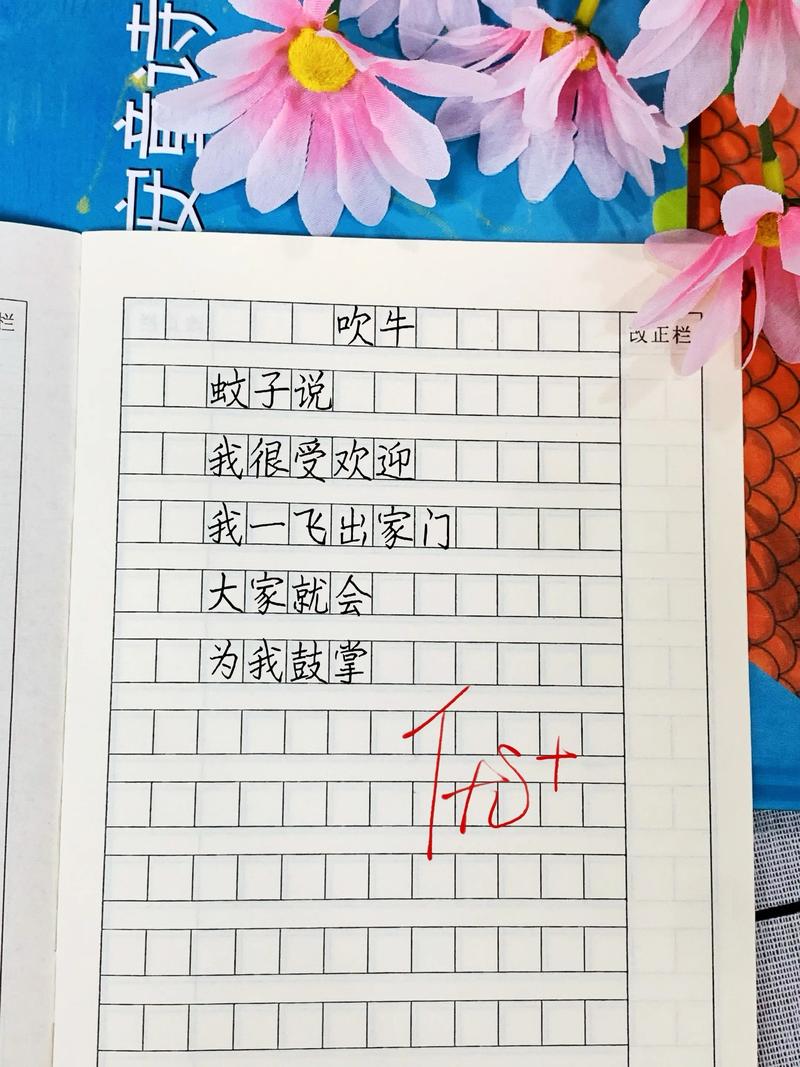 安童诗
吹牛
改正栏
蚊子说
我很受欢迎
我一飞出家门
大家就会
为我鼓掌
优+
栏